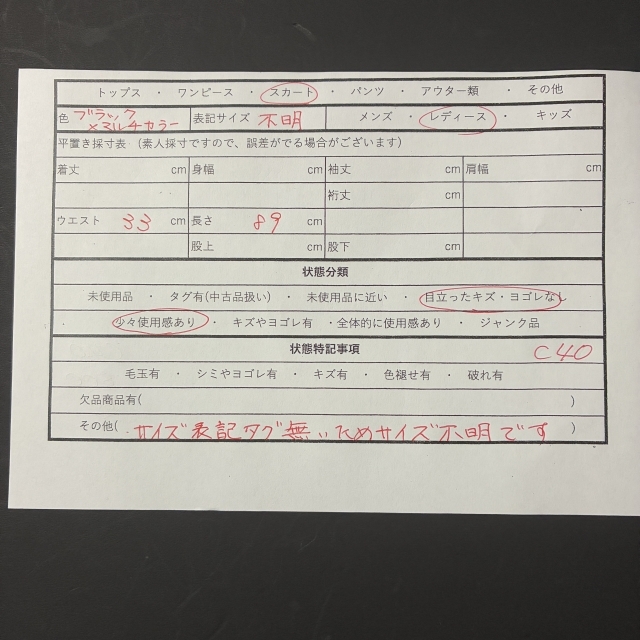 トップス ・ ワンピース ・ スカート ・ パンツ ・ アウター類 ・ その他
色 ブラック×マルチカラー 表記サイズ 不明 メンズ ・ レディース ・ キッズ
平置き採寸表 (素人採寸ですので、誤差がでる場合がございます)
着丈 cm 身幅 cm 袖丈 cm 肩幅 cm
裄丈 cm
ウエスト 33 cm 長さ 89 cm
股上 cm 股下 cm
状態分類
未使用品 ・ タグ有(中古品扱い) ・ 未使用品に近い ・ 目立ったキズ・ヨゴレなし
少々使用感あり ・ キズやヨゴレ有 ・全体的に使用感あり ・ ジャンク品
状態特記事項 C40
毛玉有 ・ シミやヨゴレ有 ・ キズ有 ・ 色褪せ有 ・ 破れ有
欠品商品有( )
その他( サイズ表記タグ無いためサイズ不明です )